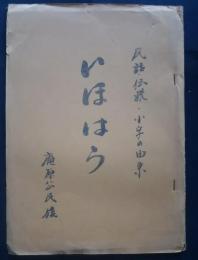 民話伝説・小字の由来
いほはら
庵原公民館